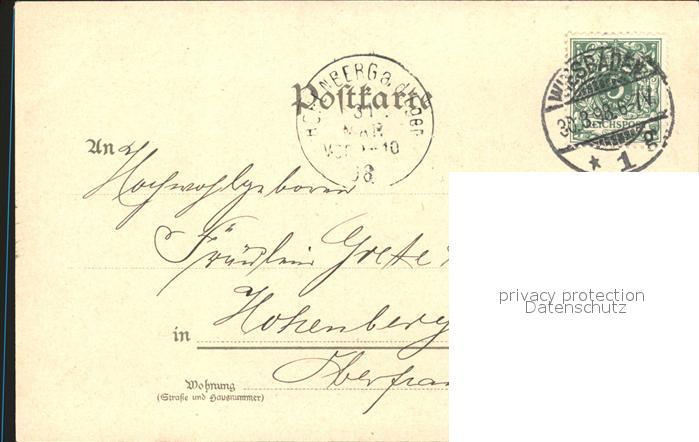 Postkarte
HOHENBERG a. d. Eger
31
MAR
VOR 9-10
98
WIESBADEN
30.3.98. 6-7 N
* 1 g
REICHSPOST
5
An
Hochwohlgeboren
Fräulein Grete
in Hohenberg
Oberfra
Wohnung
(Straße und Hausnummer)
privacy protection
Datenschutz